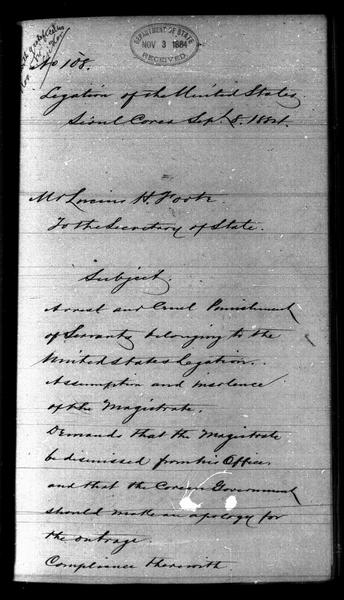 No 108.
DEPARTMENT OF STATE
NOV 3 1884
RECEIVED
Legation of the United States.
Séoul Corea Sept. 8. 1884.
Mr Lucius H. Foote
To the Secretary of State.
Subject.
Arrest and Cruel Punishment
of Servants belonging to the
United States Legation.
Assumption and insolence
of the Magistrate.
Demands that the Magistrate
be dismissed from his Office,
and that the Corean Government
should make an apology for
the outrage.
Compliance therewith.